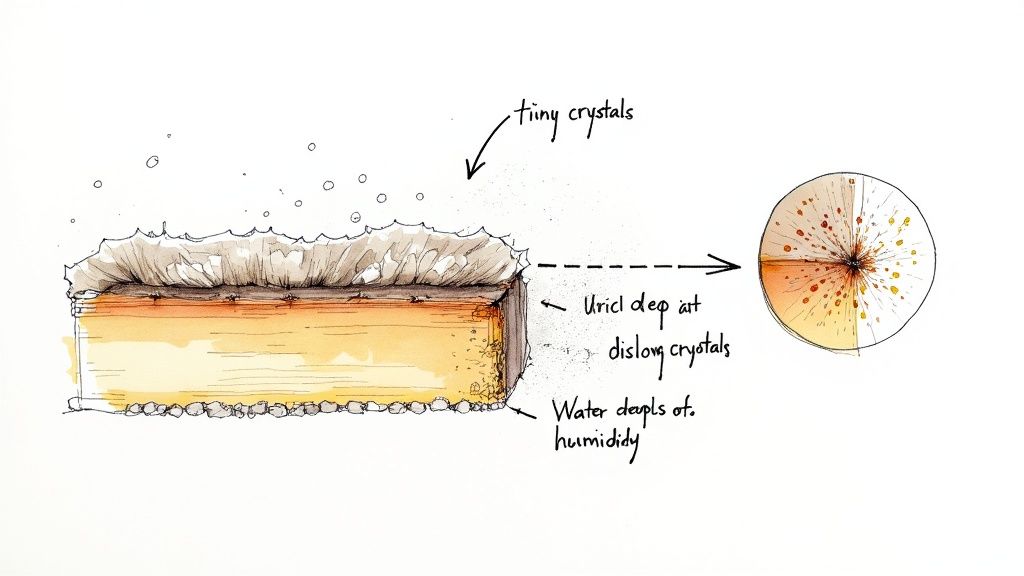 tiny crystals
Uricl deep art
dislowg crystals
Water deupls of.
humididy